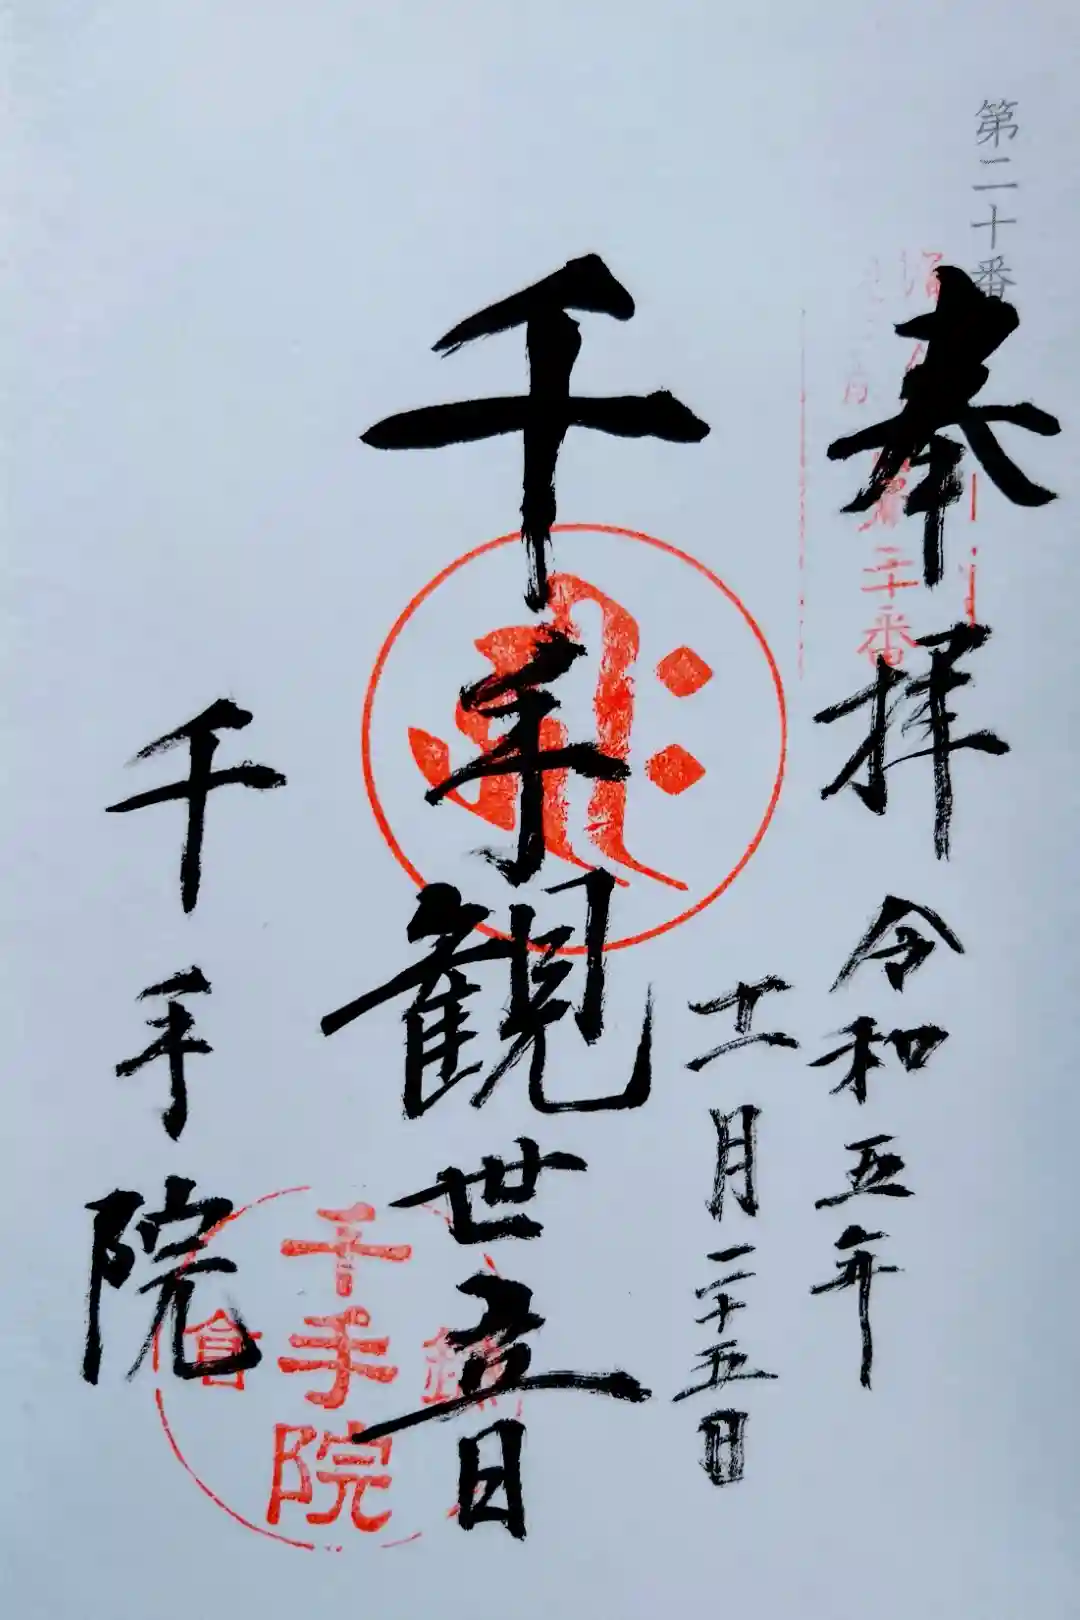 第二十番
奉拝
令和五年
十一月二十五日
千手観世音
千手院
二十番
千手院
鎌倉